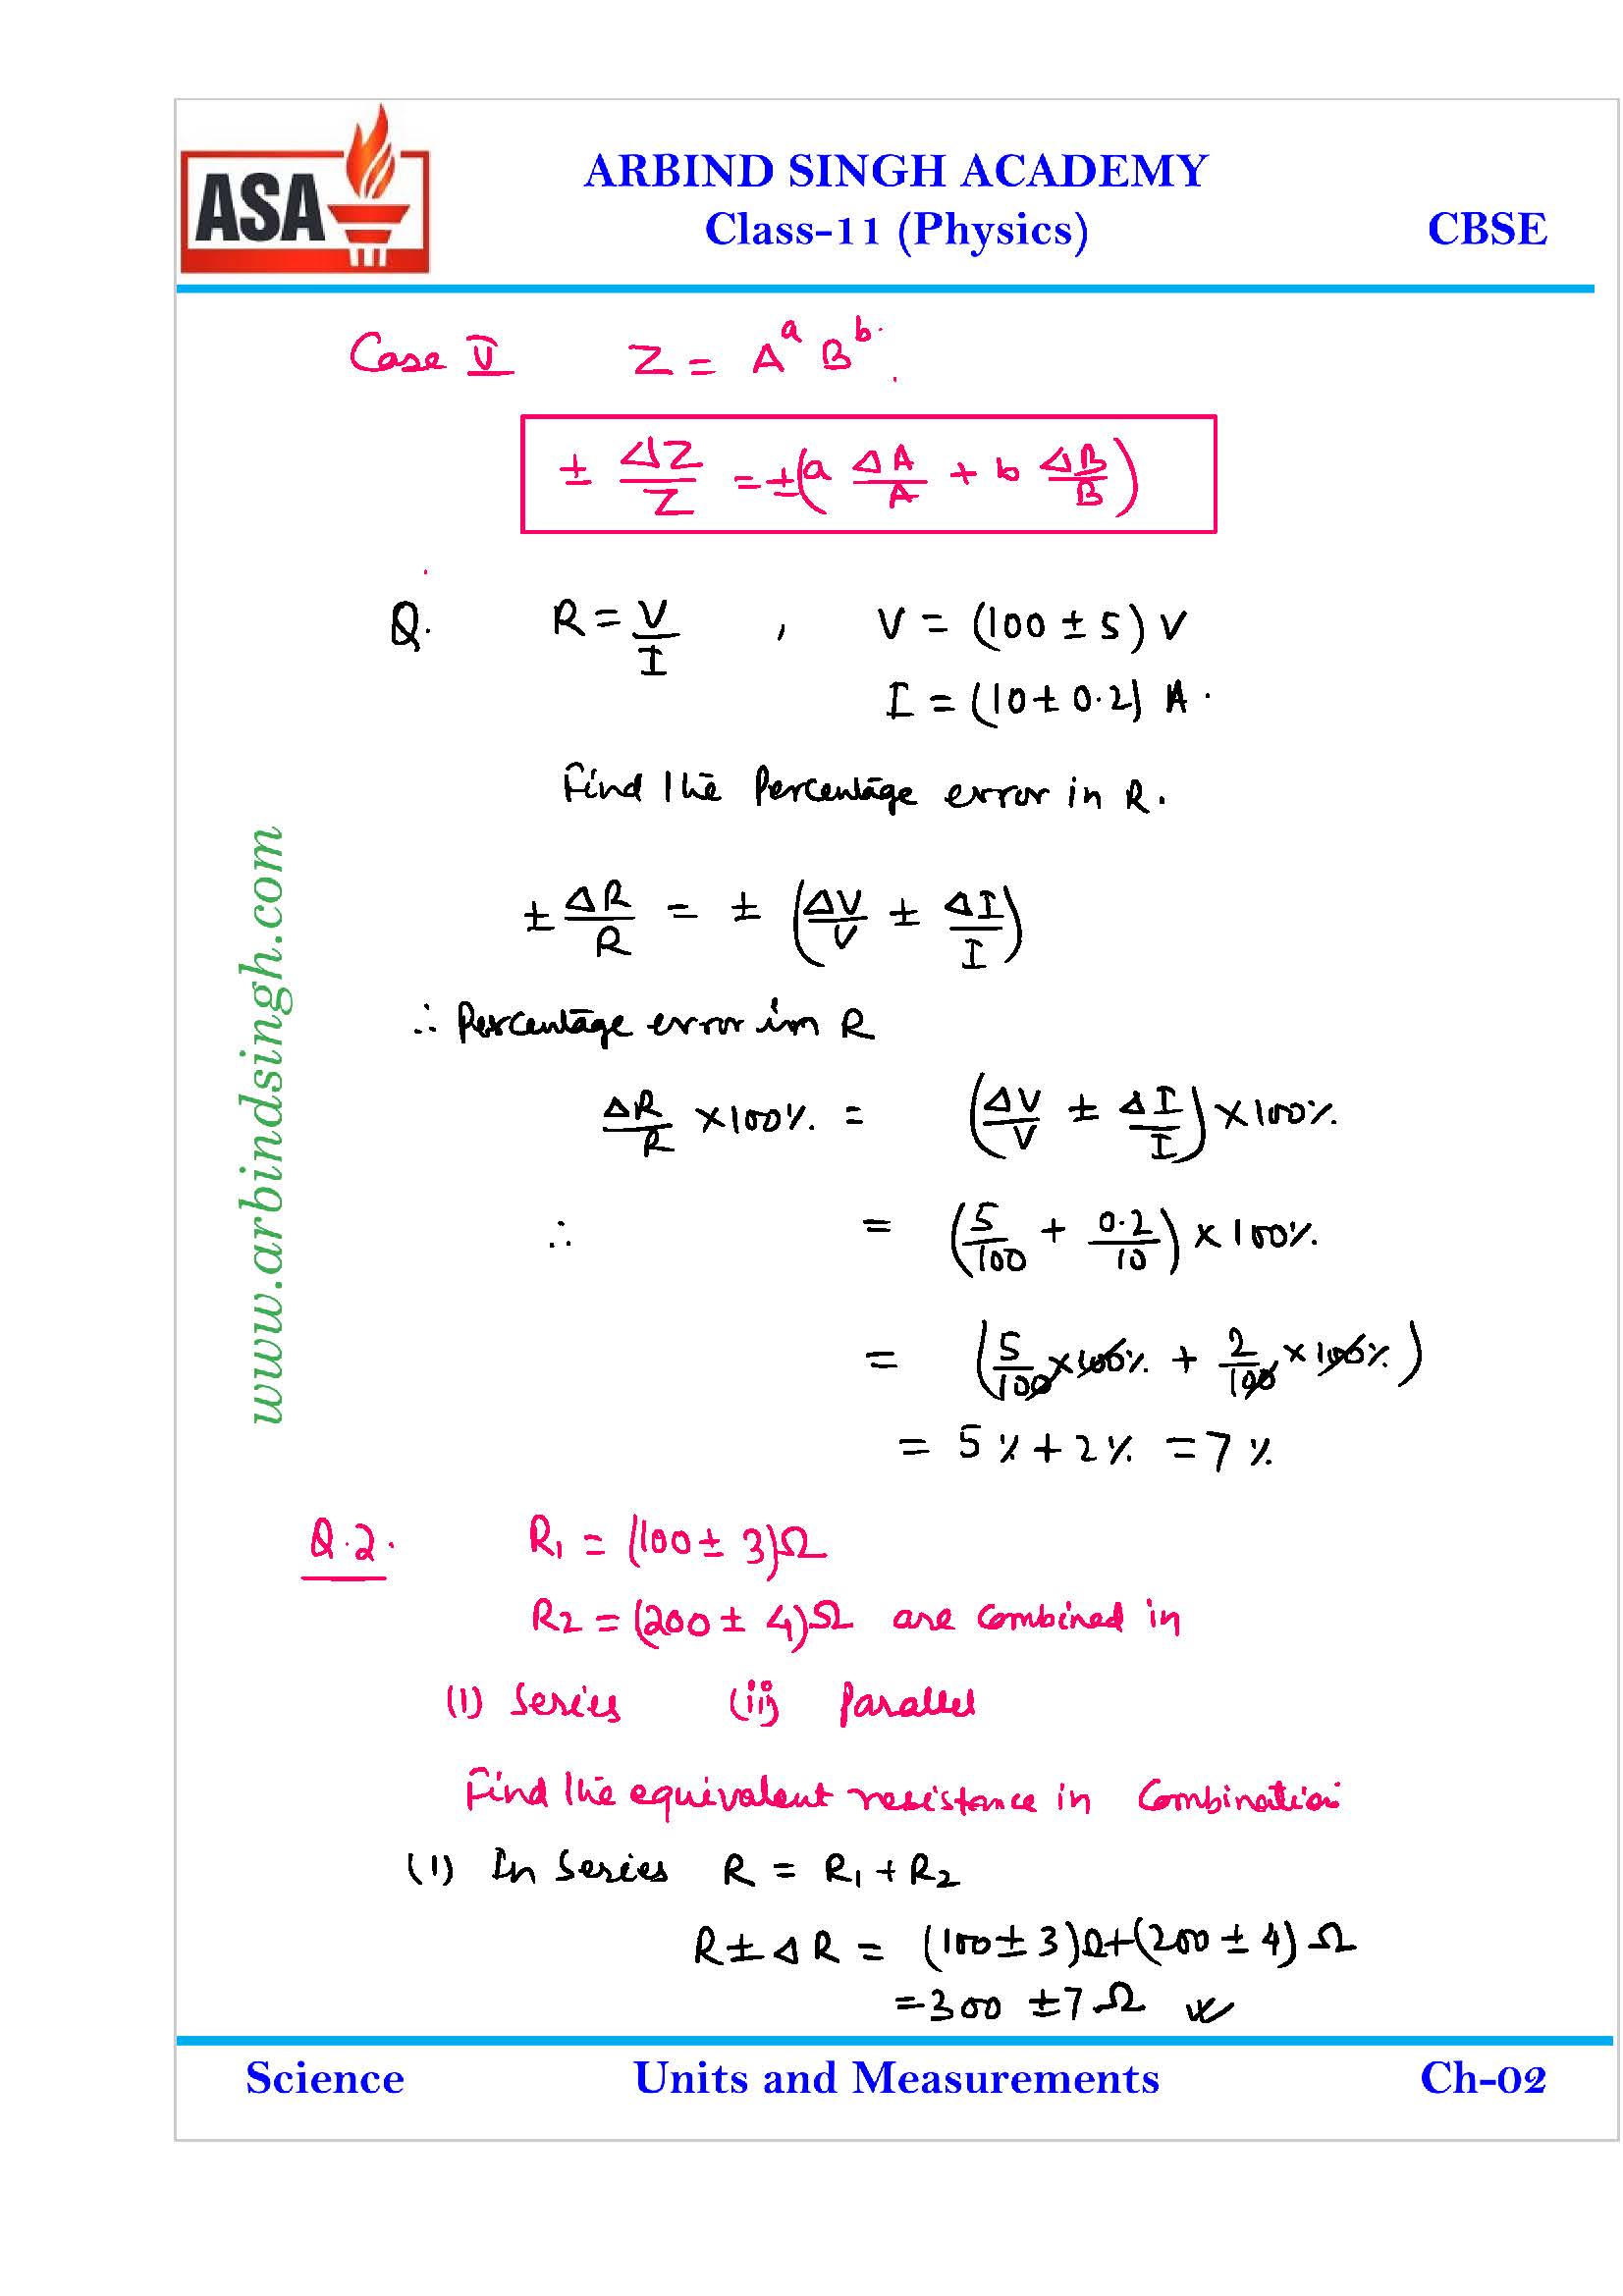 ASA
ARBIND SINGH ACADEMY
Class-11 (Physics) CBSE
Case V Z = A^a B^b.
± ΔZ/Z = ±(a ΔA/A + b ΔB/B)
Q. R = V/I , V = (100 ± 5) V
I = (10 ± 0.2) A.
Find the Percentage error in R.
± ΔR/R = ± (ΔV/V ± ΔI/I)
∴ Percentage error in R
ΔR/R ×100% = (ΔV/V ± ΔI/I) ×100%
∴ = (5/100 + 0.2/10) ×100%
= (5/100 ×100% + 2/100 ×100%)
= 5% + 2% = 7%
Q.2. R₁ = (100 ± 3)Ω
R₂ = (200 ± 4)Ω are combined in
(i) Series (ii) Parallel
Find the equivalent resistance in Combination
(i) In Series R = R₁ + R₂
R ± ΔR = (100 ± 3)Ω + (200 ± 4) Ω
= 300 ± 7 Ω
www.arbindsingh.com
Science Units and Measurements Ch-02